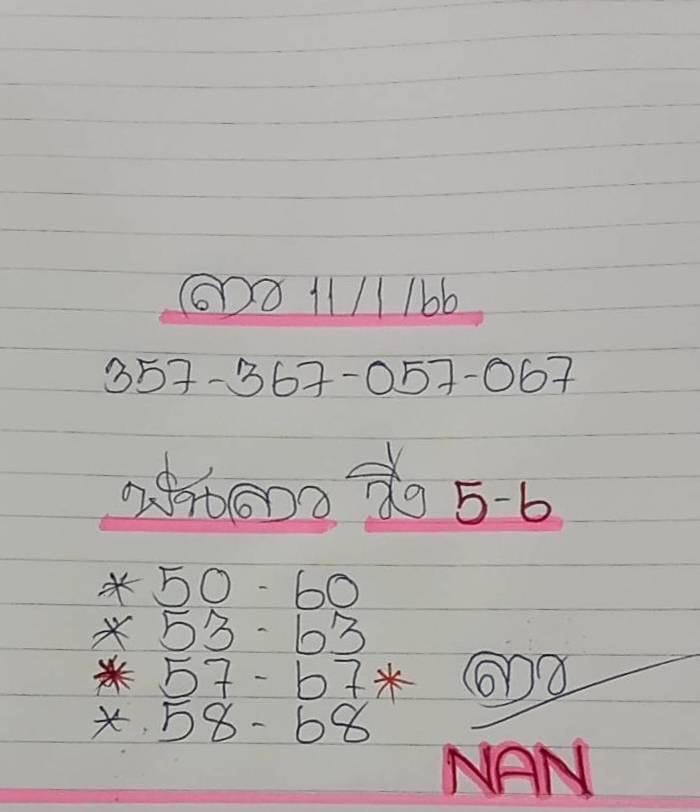 ลาว 11/1/66
357-367-057-067
ฟันลาว วิ่ง 5-6
* 50 - 60
* 53 - 63
* 57 - 67 *
* . 58 - 68
ลาว
NAN